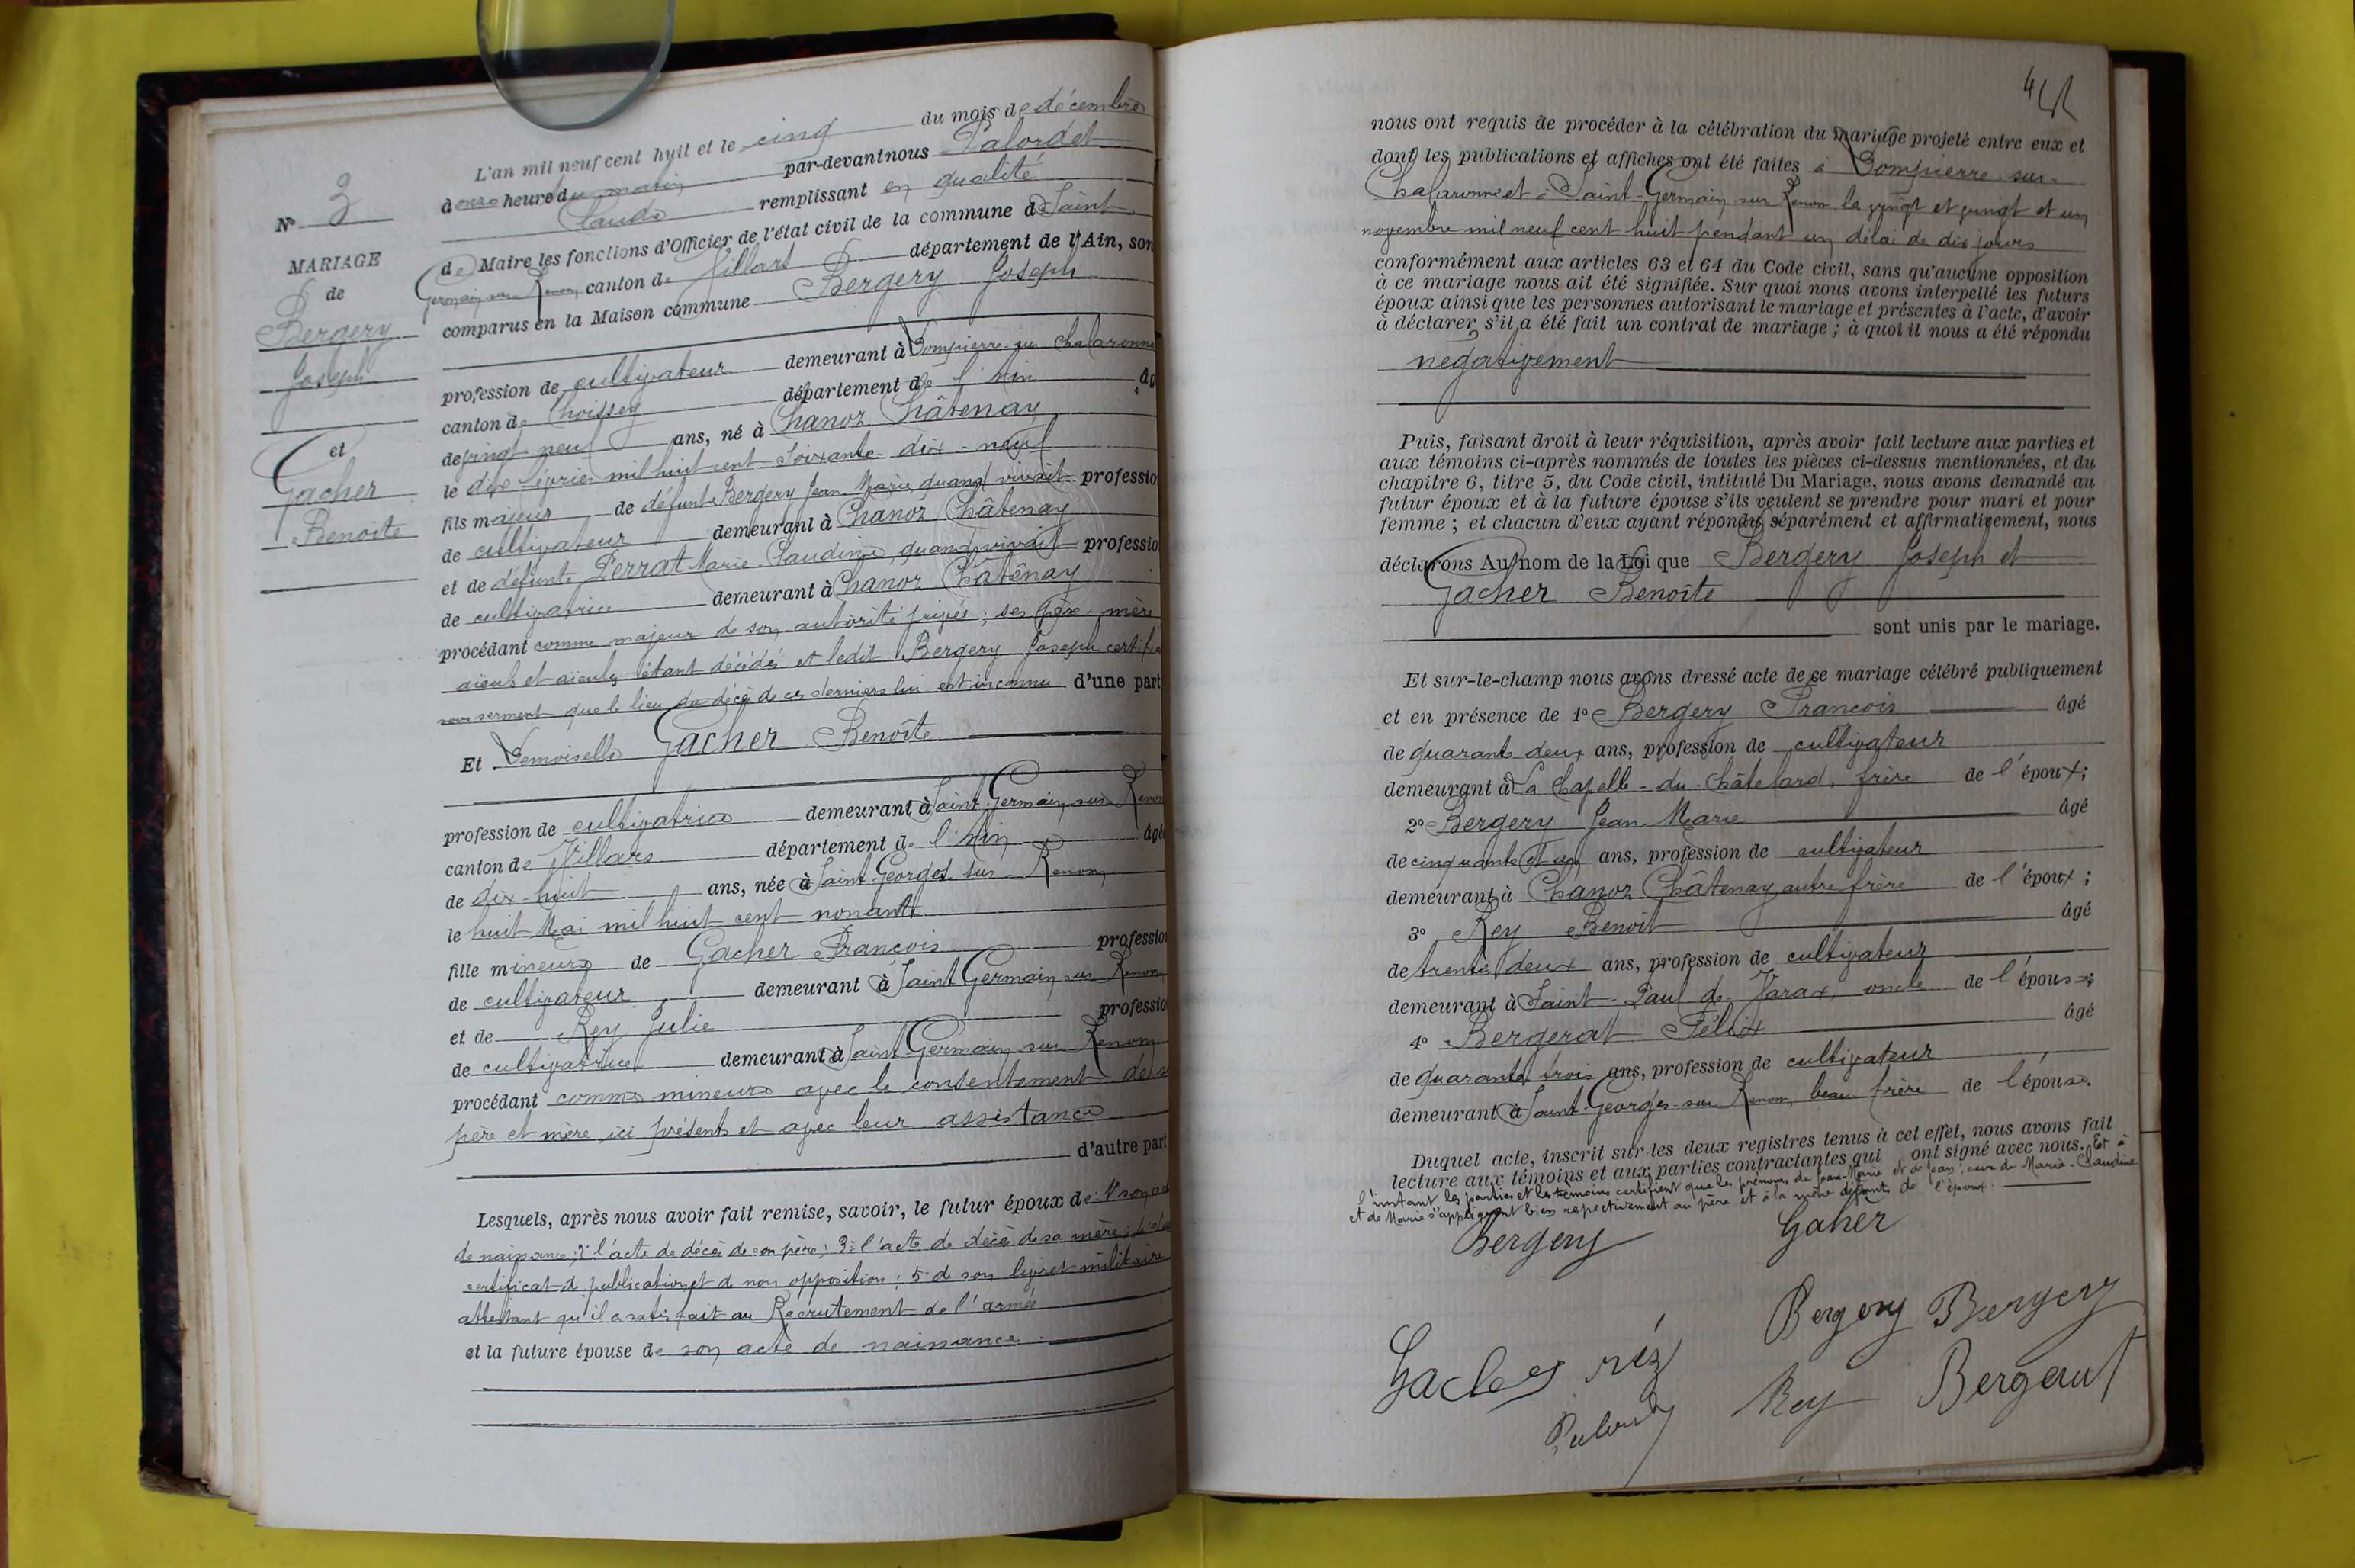 L'an mil neuf cent huit et le cinq du mois de décembre
à onze heure du matin par-devant nous Palordet
Claude remplissant en qualité
de Maire les fonctions d'Officier de l'état civil de la commune de Saint
Germain sur Renon canton de Villars département de l'Ain, son
comparus en la Maison commune Bergery Joseph
N° 3
MARIAGE
de
Bergery
Joseph
et
Gacher
Benoîte
profession de cultivateur demeurant à Dompierre sur Chalaronne
canton de département de l'Ain âg
de vingt neuf ans, né à Chanoz Châtenay
le dix février mil huit cent soixante dix-neuf
fils majeur de défunt Bergery Jean Marie quand vivait professio
de cultivateur demeurant à Chanoz Châtenay
et de défunte Perrat Marie Claudine, quand vivait professio
de cultivatrice demeurant à Chanoz Châtenay
procédant comme majeur de son autorité privée ; ses père, mère
aïeuls et aïeules étant décédés et ledit Bergery Joseph certifie
sous serment que le lieu du décès de ces derniers lui est inconnu d'une part
Et Demoiselle Gacher Benoîte
profession de cultivatrice demeurant à Saint Germain sur Renon
canton de Villars département de l'Ain âgé
de dix-huit ans, née à Saint Georges sur Renon
le huit Mai mil huit cent nonante
fille mineure de Gacher François professio
de cultivateur demeurant à Saint Germain sur Renon
et de Rey Julie professio
de cultivatrice demeurant à Saint Germain sur Renon
procédant comme mineure avec le consentement de s
père et mère ici présents et avec leur assistance
d'autre part
Lesquels, après nous avoir fait remise, savoir, le futur époux de 1° son
de naissance ; 2° l'acte de décès de son père ; 3° l'acte de décès de sa mère ;
certificat de publication et de non opposition ; 5° de son livret militaire
attestant qu'il a satisfait au Recrutement de l'armée
et la future épouse de son acte de naissance.
nous ont requis de procéder à la célébration du mariage projeté entre eux et
dont les publications et affiches ont été faites à Dompierre sur
Chalaronne et à Saint-Germain sur Renon les vingt et vingt et un
novembre mil neuf cent huit pendant un délai de dix jours
conformément aux articles 63 et 64 du Code civil, sans qu'aucune opposition
à ce mariage nous ait été signifiée. Sur quoi nous avons interpellé les futurs
époux ainsi que les personnes autorisant le mariage et présentes à l'acte, d'avoir
à déclarer s'il a été fait un contrat de mariage ; à quoi il nous a été répondu
négativement
Puis, faisant droit à leur réquisition, après avoir fait lecture aux parties et
aux témoins ci-après nommés de toutes les pièces ci-dessus mentionnées, et du
chapitre 6, titre 5, du Code civil, intitulé Du Mariage, nous avons demandé au
futur époux et à la future épouse s'ils veulent se prendre pour mari et pour
femme ; et chacun d'eux ayant répondu séparément et affirmativement, nous
déclarons Au nom de la Loi que Bergery Joseph et
Gacher Benoîte
sont unis par le mariage.
Et sur-le-champ nous avons dressé acte de ce mariage célébré publiquement
et en présence de 1° Bergery François âgé
de quarante deux ans, profession de cultivateur
demeurant à La Chapelle-du-Châtelard, frère de l'époux ;
2° Bergery Jean Marie âgé
de cinquante et un ans, profession de cultivateur
demeurant à Chanoz Châtenay autre frère de l'époux ;
3° Rey Benoît âgé
de trente deux ans, profession de cultivateur
demeurant à Saint-Paul de Varax, oncle de l'épouse ;
4° Bergerat Félix âgé
de quarante trois ans, profession de cultivateur
demeurant à Saint-Georges-sur Renon, beau frère de l'épouse.
Duquel acte, inscrit sur les deux registres tenus à cet effet, nous avons fait
lecture aux témoins et aux parties contractantes qui ont signé avec nous. Et à
l'instant les parties et les témoins certifient que les prénoms de Jean-Marie et de Jean, ceux de Marie-Claudine
et de Marie s'appliquent bien respectivement au père et à la mère défunts de l'époux.
Bergery Gaher
Bergery Bergery
Gacher
Rey Bergerat